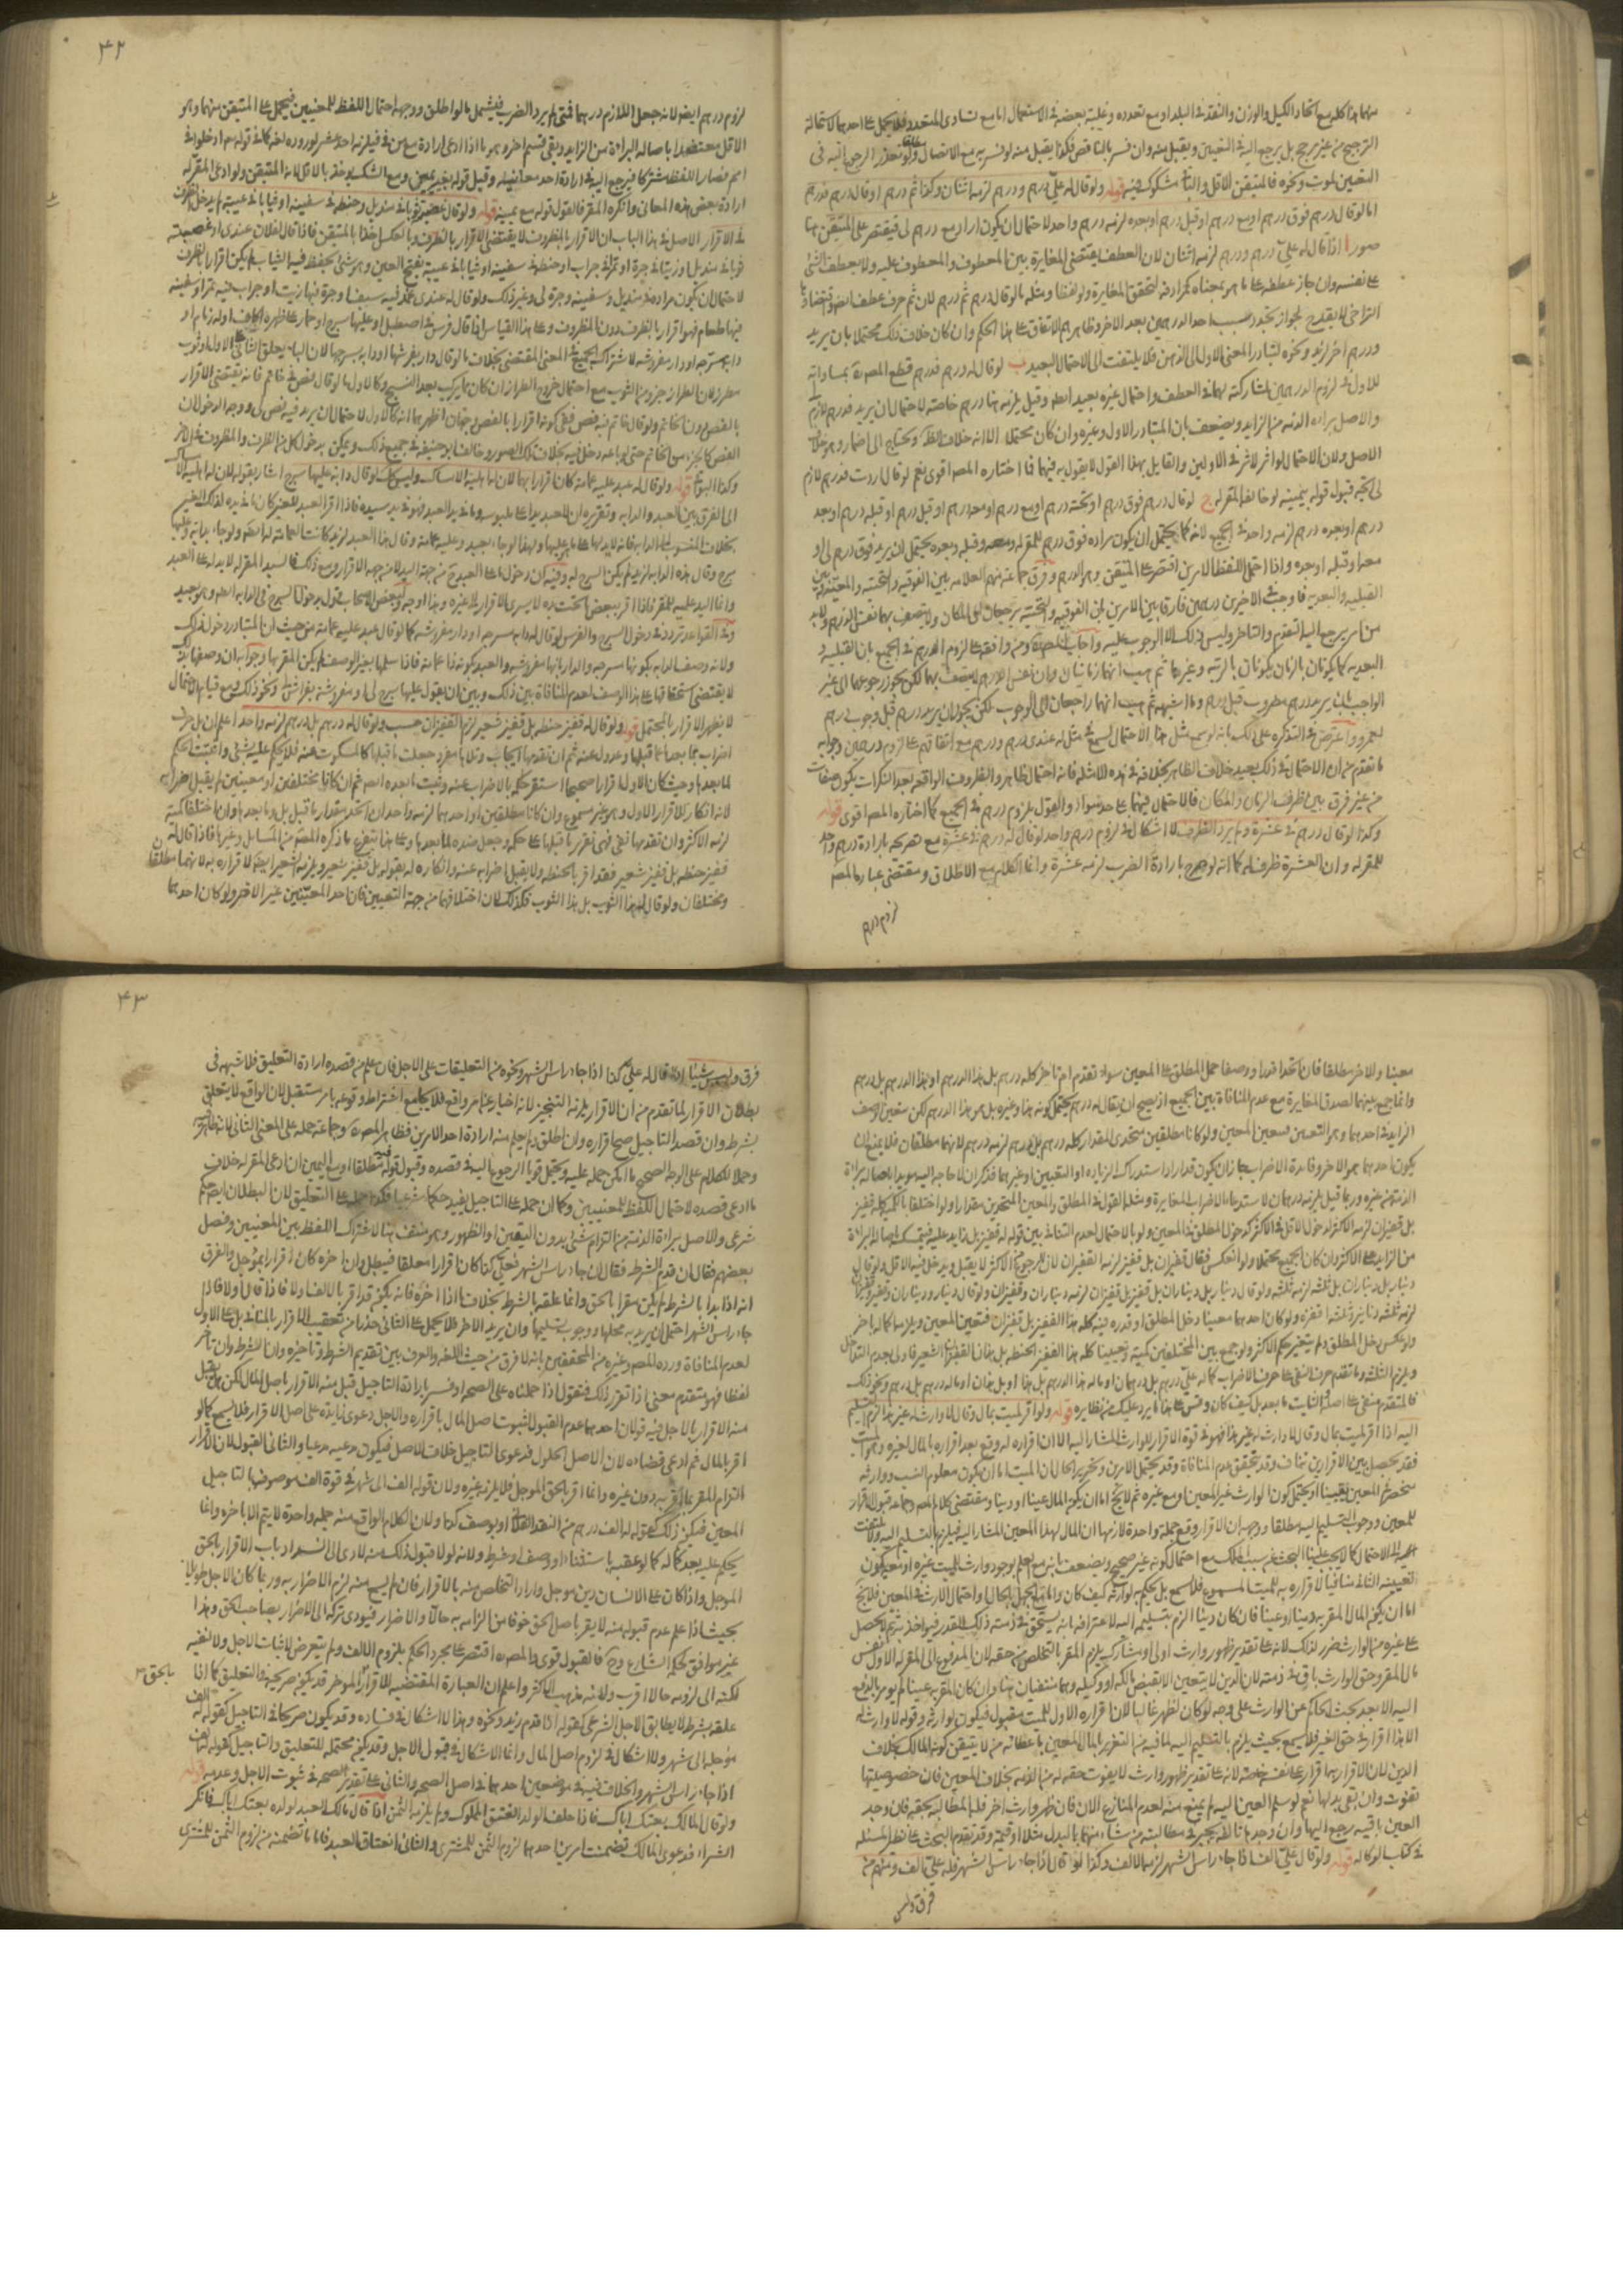 منهما هذا كله مع اتحاد الكيل والوزن والنقد في البلد او مع تعدده وغلبة بعضه في الاستعمال اما مع تساوى المتعدد فلا يحمل على احدهما لاستحالة
الترجيح من غير مرجح بل يرجع اليه في التعيين ويقبل منه وان فسر بالناقص فكذا يقبل منه لو فسر به مع الاتصال ولو تعذر الرجوع اليه في
التعيين لموت ونحوه فالمتيقن الاقل والباقي مشكوك فيه قوله ولو قال له على درهم ودرهم لزمه اثنان وكذا ثم درهم او قال درهم فدرهم
اما لو قال درهم فوق درهم او مع درهم او قبل درهم او بعده لزمه درهم واحد لاحتمال ان يكون اراد مع درهم لى فيقتصر على المتيقن هنا
صور ا اذا قال له علي درهم ودرهم لزمه اثنان لان العطف يقتضى المغايرة بين المعطوف والمعطوف عليه ولا يعطف الشئ
على نفسه وان جاز عطفه على ما هو بمعناه كمرادفه لتحقق المغايرة ولو لفظا ومثله ما لو قال درهم ثم درهم لان ثم حرف عطف ايضا
التراخى لا يقدح لجواز تجدد سبب احد الدرهمين بعد الاخر وظاهرهم الاتفاق على هذا الحكم وان كان خلاف ذلك محتملا بان يريد
ودرهم اخر ونحوه لتبادر المعنى الاول الى الذهن فلا يلتفت الى الاحتمال البعيد ب لو قال له درهم فدرهم قطع المصره بمساواته
للاول في لزوم الدرهمين لمشاركته لهما في العطف واحتمال غيره بعيد وقيل يلزمه هنا درهم خاصة لاحتمال ان يريد فدرهم لازم
والاصل براءة الذمة من الزايد ويضعف بان المتبادر الاول وغيره وان كان محتملا الا انه خلاف الظاهر ويحتاج الى اضمار وهو خلاف
الاصل ولان الاحتمال لو اثر لاثر في الاولين والقايل بهذا القول لا يقول به فيهما فما اختاره المصره اقوى نعم لو قال اردت فدرهم لازم
لى اتجه قبول قوله بيمينه لو خالفه المقر له ج لو قال درهم فوق درهم او تحته درهم او مع درهم او معه درهم او قبل درهم او قبله درهم او بعد
درهم او بعده درهم لزمه واحد في الجميع لانه كما يحتمل ان يكون مراده فوق درهم للمقر له ومعه وقبله وبعده يحتمل ان يريد فوق درهم لى او
معه او قبله او بعده واذا احتمل اللفظ الامرين اقتصر على المتيقن وهو الدرهم وفرق جماعة منهم العلامه بين الفوقيه والتحتيه والمعيه وبين
القبليه والبعديه فاوجب في الاخيرين درهمين فارقا بين الامرين بان الفوقيه والتحتيه يرجعان الى المكان ولا يتصف بهما نفس الدرهم ولا بد
من امر يرجع اليه التقدم والتاخر وليس ذلك الا الوجوب عليه واجاب المصره ومن وافقه على لزوم الدرهم في الجميع بان القبلية و
البعديه كما يكونان بالزمان يكونان بالرتبه وغيرها ثم هب انهما زمانيان وان نفس الدرهم لا يتصف بهما لكن يجوز رجوعهما الى غير
الواجب بان يريد درهم مضروب قبل درهم وما اشبهه ثم هب انهما راجعان الى الوجوب لكن يجوز ان يريد درهم قبل وجوب درهم
لعمرو واعترض في التذكرة على ذلك بانه لو سمع مثل هذا الاحتمال لسمع في مثل له عندى درهم ودرهم مع اتفاقهم على لزوم درهمين وجوابه
ما تقدم من ان الاحتمال في ذلك بعيد خلاف الظاهر بخلافه في هذه الامثله فانه احتمال ظاهر والظروف الواقعة بعد النكرات يكون صفات
من غير فرق بين ظرف الزمان والمكان فالاحتمال فيهما على حد سواء والقول بلزوم درهم في الجميع كما اختاره المصره اقوى قوله
وكذا لو قال درهم في عشرة ولم يرد الضرب لا اشكال في لزوم درهم واحد لو قال له درهم في عشرة مع تصريحه بارادة درهم واحد
للمقر له وان العشرة ظرف له كما انه لو صرح بارادة الضرب لزمه عشرة وانما الكلام مع الاطلاق ومقتضى عبارة المصره
لزوم درهم
۴۲
لزوم درهم ايضا لانه جعل اللازم درهما متى لم يرد الضرب فيشمل ما لو اطلق ووجهه احتمال اللفظ للمعنيين فيحمل على المتيقن منهما وهو
الاقل معتضدا باصاله البراءة من الزايد وبقى قسم اخر وهو ما اذا ادعى ارادة مع من في فيلزمه احد عشر لوروده لغة كما في قوله تعالى ادخلوا في
امم فصار اللفظ مشتركا فيرجع اليه في ارادة احد معانيه وقيل قوله بغير يمين ومع الشك يوخذ بالاقل لانه المتيقن ولو ادعى المقر له
ارادة بعض هذه المعانى وانكره المقر فالقول قوله مع يمينه قوله ولو قال غصبته ثوبا في منديل وحنطة في سفينه او ثيابا في عيبة لم يدخل الظرف
في الاقرار الاصل في هذا الباب ان الاقرار بالمظروف لا يقتضى الاقرار بالظرف وبالعكس اخذا بالمتيقن فاذا قال لفلان عندى او غصبته
ثوبا في منديل او زيتا في جرة او تمرا في جراب او حنطة في سفينه او ثيابا في عيبة بفتح العين وهو شئ يحفظ فيه الثياب لم يكن اقرارا بالظرف
لاحتمال ان يكون مراده في منديل وسفينه وجرة لى وغير ذلك ولو قال له عندى غمد فيه سيف او جرة فيها زيت او جراب فيه تمر او سفينه
فيها طعام فهو اقرار بالظرف دون المظروف وعلى هذا القياس اذا قال فرس في اصطبل او عليها سرج او حمار على ظهره اكاف او له زمام او
دابة مسرجه او دار مفروشه لاشتراك الجميع في المعنى المقتضى بخلاف ما لو قال دار بفرشها او دابه بسرجها لان الباء تعلق الثانى على الاول او ثوب
مطرز لان الطراز جزء من الثوب مع احتمال خروج الطراز ان كان مما يركب بعد النسج وكالاول ما لو قال فص في خاتم فانه يقتضى الاقرار
بالفص دون الخاتم ولو قال خاتم فيه فص ففى كونه اقرارا بالفص وجهان اظهرهما انه كالاول لاحتمال ان يريد فيه فص لى ووجه الدخول ان
الفص كالجزء من الخاتم حتى لو باعه دخل فيه بخلاف تلك الصور وخالف ابو حنيفه في جميع ذلك ويمكن بدخول كل من الظرف والمظروف في الاخر
وكذا البواقى قوله ولو قال له عبد عليه عمامة كان اقرارا بهما لان له اهلية الامساك وليس كذلك لو قال دابه عليها سرج اشار بقوله لان له اهلية الامساك
الى الفرق بين العبد والدابه وتقريره ان للعبد يدا على ملبوسه وما في يد العبد فهو في يد سيده فاذا اقر بالعبد للغير كان ما في يده لذلك الغير
بخلاف المنسوب الى الدابه فانه لا يد لها على ما هو عليها ولهذا لو جاء بعبد وعليه عمامة وقال هذا العبد لزيد كانت العمامة له ولو جاء بدابه وعليها
سرج وقال هذه الدابه لزيد لم يكن السرج له وفيه ان دخول ما على العبد ح من جهة اليد لا من جهة الاقرار ومع ذلك فالسيد المقر له لا يد له على العبد
ولانه وصف الدابه بكونها مسرجه والدار بانها مفروشه والعبد بكونه ذا عمامه فاذا سلمها بغير الوصف لم يكن المقر بها وجوابه ان وصفها بذلك
لا يقتضى استحقاقها على هذا الوصف لعدم المنافاة بين ذلك وبين ان يقول عليها سرج لى او مفروشة بفراش لى ونحو ذلك ومع قيام الاحتمال
لا يظهر الاقرار بالمحتمل قوله ولو قال له قفيز حنطه بل قفيز شعير لزمه القفيزان حسب ولو قال له درهم بل درهم لزمه واحد اعلم ان بل حرف
اضراب عما بعدها عما قبلها وعدول عنه ثم ان تقدمها ايجاب وتلاها مفرد جعلت ما قبلها كالمسكوت عنه فلا يحكم عليه بشئ واثبتت الحكم
لما بعدها وحيث كان الاول اقرارا صحيحا استقر حكمه بالاضراب عنه وثبت ما بعده ايضا ثم ان كانا مختلفين او معينين لم يقبل اضرابه
لانه انكار للاقرار الاول وهو غير مسموع وان كانا مطلقين او احدهما لزمه واحد ان اتحد مقدار ما قبل بل وما بعدها وان اختلفا كمية
لزمه الاكثر وان تقدمها نفى فهى تقرر ما قبلها على حكمه وجعل ضده لما بعدها وعلى هذا يتفرع ما ذكره المصنف من المسايل وغيرها فاذا قال له
قفيز حنطه بل قفيز شعير فقد اقر بالحنطه ولا يقبل اضرابه عنه وانكاره له بقوله بل قفيز شعير ويلزمه الشعير ايضا لاقراره به لانهما مطلقان
ومختلفان ولو قال له هذا الثوب بل هذا الثوب فكذلك لان اختلافهما من جهة التعيين فان احد المعينين غير الاخر ولو كان احدهما
معينا والاخر مطلقا فان اتحدا قدرا ووصفا حمل المطلق على المعين سواء تقدم ام تاخر كله درهم بل هذا الدرهم او هذا الدرهم بل درهم
وانما جمع بينهما لصدق المغايرة مع عدم المنافاة بين الجميع اذ يصح ان يقال له درهم يحتمل كونه هذا وغيره بل هو هذا الدرهم لكن يتعين الوصف
الزايد في احدهما وهو التعيين فيتعين المعين ولو كانا مطلقين متحدى المقدار كله درهم بل درهم لزمه درهم لانهما مطلقان فلا يمنع ان
يكون احدهما هو الاخر وفايدة الاضراب جاز ان يكون قد اراد استدراك الزيادة او التعيين او غيرهما فذكر ان لا حاجة اليه مويدا باصاله براءة
الذمة من غيره وربما قيل يلزمه درهمان لاستدعاء الاضراب المغايرة ومثله القول في المطلق والمعين المتحدين مقدارا ولو اختلفا بالكميه كله قفيز
بل قفيزان لزمه الاكثر لدخول الاقل في الاكثر كدخول المطلق في المعين ولو بالاحتمال لعدم التنافى بين قوله له قفيز بل زايد عليه فيتمسك باصاله البراءة
من الزايد على الاكثر وان كان الجميع محتملا ولو انعكس فقال قفيزان بل قفيز لزمه القفيزان لان الرجوع عن الاكثر لا يقبل ويدخل فيه الاقل ولو قال
دينار بل ديناران بل ثلثة لزمه ثلثة ولو قال دينار بل ديناران بل قفيز بل قفيزان لزمه ديناران وقفيزان ولو قال دينار وديناران وقفيز وقفيزان
لزمه ثلثة دنانير وثلثة اقفزة ولو كان احدهما معينا دخل المطلق او قدره فيه كله هذا القفيز بل قفيزان فيتعين المعين ويلزمه اكماله باخر
ولو عكس دخل المطلق ولم يتغير حكم الاكثر ولو جمع بين المختلفين كمية وتعيينا كله هذا القفيز الحنطه بل هذان القفيزان الشعير فاولى بعدم التداخل
ويلزم الثلثة وما تقدم حرف النفى على حرف الاضراب كما له على درهم بل درهمان او ماله هذا الدرهم بل هذا او بل هذان او ماله درهم بل درهم ونحو ذلك
فالمتقدم منفى على اصله والثابت ما بعد بل كيف كان وقس على هذا ما يرد عليك من نظايره قوله ولو اقر لميت بمال وقال لا وارث له غير هذا الزم التسليم
اليه اذا اقر لميت بمال وقال لا وارث له غير هذا فهو في قوة الاقرار للوارث المشار اليه الا ان اقراره له وقع بعد اقراره بالمال لغيره وهو الميت
فقد يحصل بين الاقرارين تناف وقد يتحقق عدم المنافاة وقد يحتمل الامرين وتحرير الحال ان الميت اما ان يكون معلوم النسب ووارثه
منحصر في المعين يقينا او يحتمل كون الوارث غير المعين او مع غيره ثم لا يخلو اما ان يكون المال عينا او دينا ومقتضى كلام المصره وجماعة قبول الاقرار
للمعين ووجوب التسليم اليه مطلقا ووجهه ان الاقرار وقع جملة واحدة لازمها ان المال لهذا المعين المشار اليه فيلزمه التسليم اليه ولا يلتفت
الى الاحتمال كما لا يجب علينا البحث عن سبب الملك مع احتمال كونه غير صحيح ويضعف بانه مع العلم بوجود وارث للميت غيره او تعدد يكون
تعيينه الثانى منافيا لاقراره به للميت المسموع فلا يسمع بل يحكم به لوارثه كيف كان واما مع الجهل بالحال واحتمال الارث في المعين فلا يخ
اما ان يكون المال المقر به دينا او عينا فان كان دينا الزم بتسليمه اليه لاعترافه بانه يستحق في ذمته ذلك القدر فيواخذ به ثم لا يحصل
على غيره من الوارث ضرر لذلك لانه على تقدير ظهور وارث اولى او مشارك يلزم المقر بالتخلص من حقه لان المدفوع الى المقر له الاول نفس
مال المقر وحق الوارث باق في ذمته لان الدين لا يتعين الا بقبض مالكه او وكيله وهما منتفيان هنا وان كان المقر به عينا لم يومر بالدفع
اليه الا بعد بحث الحاكم عن الوارث على وجه لو كان لظهر غالبا لان اقراره الاول للميت مقبول فيكون لوارثه وقوله لا وارث له
الا هذا اقرار في حق الغير فلا يسمع بحيث يلزم بالتسليم اليه لما فيه من التغرير بالمال المعين باعطائه من لا يتيقن كونه المالك بخلاف
الدين لان الاقرار بهما اقرار على نفسه خاصة لانه على تقدير ظهور وارث لا يفوت حقه له من الذمه بخلاف المعين فان خصوصيتها
تفوت وان بقى بدلها نعم لو سلم العين اليه لم يمنع منه لعدم المنازع الان فان ظهر وارث اخر فله المطالبة بحقه فان وجد
العين باقيه رجع اليها وان وجدها تالفه تخير في مطالبة من شاء منهما بالبدل مثلا او قيمة وقد تقدم البحث في نظير المسئله
في كتاب الوكاله قوله ولو قال على الف اذا جاء راس الشهر لزمه الالف وكذا لو قال اذا جاء راس الشهر فله على الف ومنهم من
فرق وليس
۴۳
فرق وليس شيئا اذا قال له على كذا اذا جاء راس الشهر ونحوه من التعليقات على الاجل فان علم من قصده ارادة التعليق فلا شبهه في
بطلان الاقرار لما تقدم من ان الاقرار يلزمه التنجيز لانه اخبار عن امر واقع فلا يجامع اشتراط وقوعه بامر مستقبل لان الواقع لا يعلق
بشرط وان قصد التاجيل صح اقراره وان اطلق ولم يعلم منه ارادة احد الامرين فظاهر المصره وجماعة حمله على المعنى الثانى لانه ظاهر
وحملا للكلام على الوجه الصحيح ما امكن حمله عليه ويحتمل قويا الرجوع اليه في قصده وقبول قوله فيه مطلقا او مع اليمين ان ادعى المقر له خلاف
ما ادعى قصده لاحتمال اللفظ للمعنيين وكما ان حمله على التاجيل يفيد حكما شرعيا فكذا حمله على التعليق لان البطلان ايضا حكم
شرعى والاصل براءة الذمة من التزام شئ بدون اليقين او الظهور وهو منتف هنا لاشتراك اللفظ بين المعنيين وفصل
بعضهم فقال ان قدم الشرط فقال ان جاء راس الشهر فعلى كذا كان اقرارا معلقا فيبطل وان اخره كان اقرارا بالموجل والفرق
انه اذا بدا بالشرط لم يكن مقرا بالحق وانما علقه بالشرط بخلاف ما اذا اخره فانه يكون قد اقر بالالف اولا فاذا قال اذا
جاء راس الشهر احتمل ان يريد به محلها ووجوب تسليمها وان يريد الاخر فلا يحمل على الثانى حذرا من تعقيب الاقرار بالمنافى بل على الاول
لعدم المنافاة ورده المصره وغيره من المحققين بانه لا فرق من حيث اللغه والعرف بين تقديم الشرط وتاخيره وان الشرط وان تاخر
لفظا فهو متقدم معنى اذا تقرر ذلك فنقول اذا حملناه على الصحه او فسر بارادة التاجيل قبل منه الاقرار باصل المال لكن هل يقبل
منه الاقرار بالاجل فيه قولان احدهما عدم القبول لثبوت اصل المال باقراره والاجل دعوى زايدة على اصل الاقرار فلا يسمع كما لو
اقر بالمال ثم ادعى قضاءه لان الاصل الحلول فدعوى التاجيل خلاف الاصل فيكون مدعيه مدعيا والثانى القبول لان الاقرار
التزام المقر بما اقر به دون غيره وانما اقر بالحق الموجل فلا يلزمه غيره ولان قوله الف الى شهر في قوة الف موصوفه بالتاجيل
المعين فيكون ذلك كقوله له الف درهم من النقد الفلانى او بوصف كذا ولان الكلام الواقع منه جملة واحدة لا يتم الا باخره وانما
يحكم عليه بعد كماله كما لو عقبه باستثناء او وصف او شرط ولانه لولا قبول ذلك منه لادى الى انسداد باب الاقرار بالحق
الموجل واذا كان على الانسان دين موجل واراد التخلص منه بالاقرار فان لم يسمع منه لزم الاضرار به وربما كان الاجل طويلا
بحيث اذا علم عدم قبوله منه لا يقر باصل الحق خوفا من الزامه به حالا والاضرار فيودى تركه الى الاضرار بصاحب الحق وهذا
غير موافق لحكمة الشارع وح فالقبول قوى والمصره اقتصر على مجرد الحكم بلزوم الالف ولم يتعرض لاثبات الاجل ولا نفيه
لكنه الى لزومه حالا اقرب ولانه مذهب الاكثر واعلم ان العبارة المقتضيه للاقرار الموخر قد يكون صريحة في التعليق كما اذا
بالحق
علقه بشرط لا يطابق الاجل الشرعى كقوله اذا قدم زيد ونحوه وهذا لا اشكال في فساده وقد يكون صريحا في التاجيل كقوله له الف
مؤجله الى شهر ولا اشكال في لزوم اصل المال وانما الاشكال في قبول الاجل وقد يكون محتمله للتعليق والتاجيل كقوله له الف
اذا جاء راس الشهر والخلاف فيه في موضعين احدهما في اصل الصحه والثانى على تقدير الصحه في ثبوت الاجل وعدمه قوله
ولو قال المالك بعتك اباك فاذا حلف الولد انعتق المملوك ولم يلزمه الثمن اذا قال مالك العبد لولده بعتك اباك فانكر
الشراء فدعوى المالك تضمنت امرين احدهما لزوم الثمن للمشترى والثانى انعتاق العبد فاما ما تضمنه من لزوم الثمن للمشترى